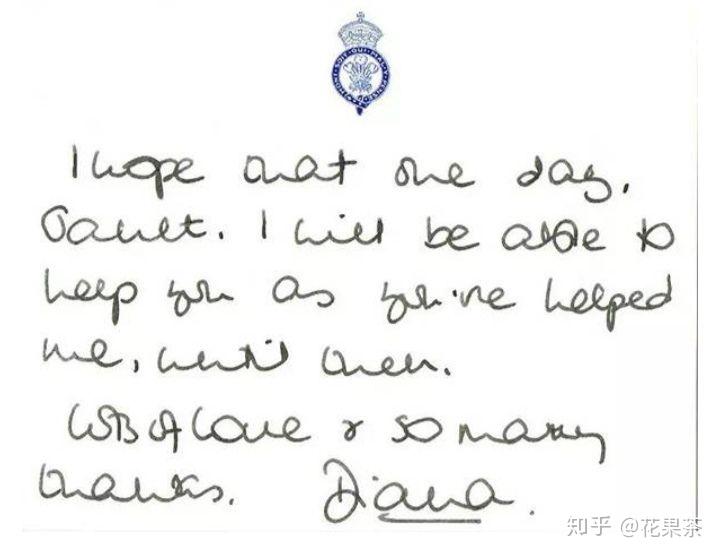 HONI·SOIT·QUI·MAL·Y·PENSE
I hope that one day,
I will be able to
help you as you've helped
me, until then.
Lots of love & so many
thanks. Diana.
知乎 @花果茶